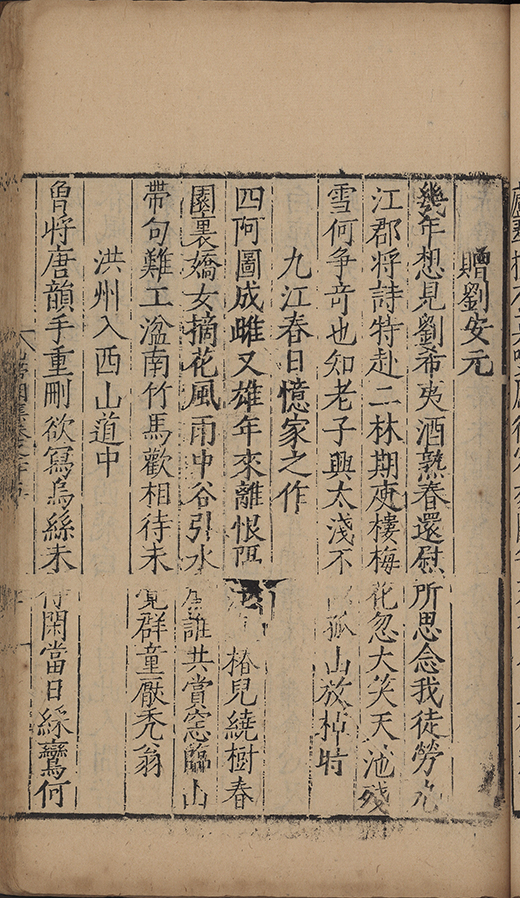 贈劉安元
幾年想見劉希夷酒熟春還慰所思念我徒勞九
江郡將詩特赴二林期庾樓梅花忽大笑天池殘
雪何爭竒也知老子興太淺不孤山放棹時
九江春日憶家之作
四阿圖成雌又雄年來離恨椿兒繞樹春
園裏嬌女摘花風雨中谷引水誰共賞窓臨山
帶句難工湓南竹馬歡相待未覺群童厭禿翁
洪州入西山道中
曾將唐韻手重刪欲冩烏絲未得閑當日綵鸞何